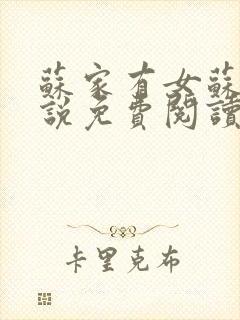 蘇家有女蘇
說免費閱讀
卡里克布